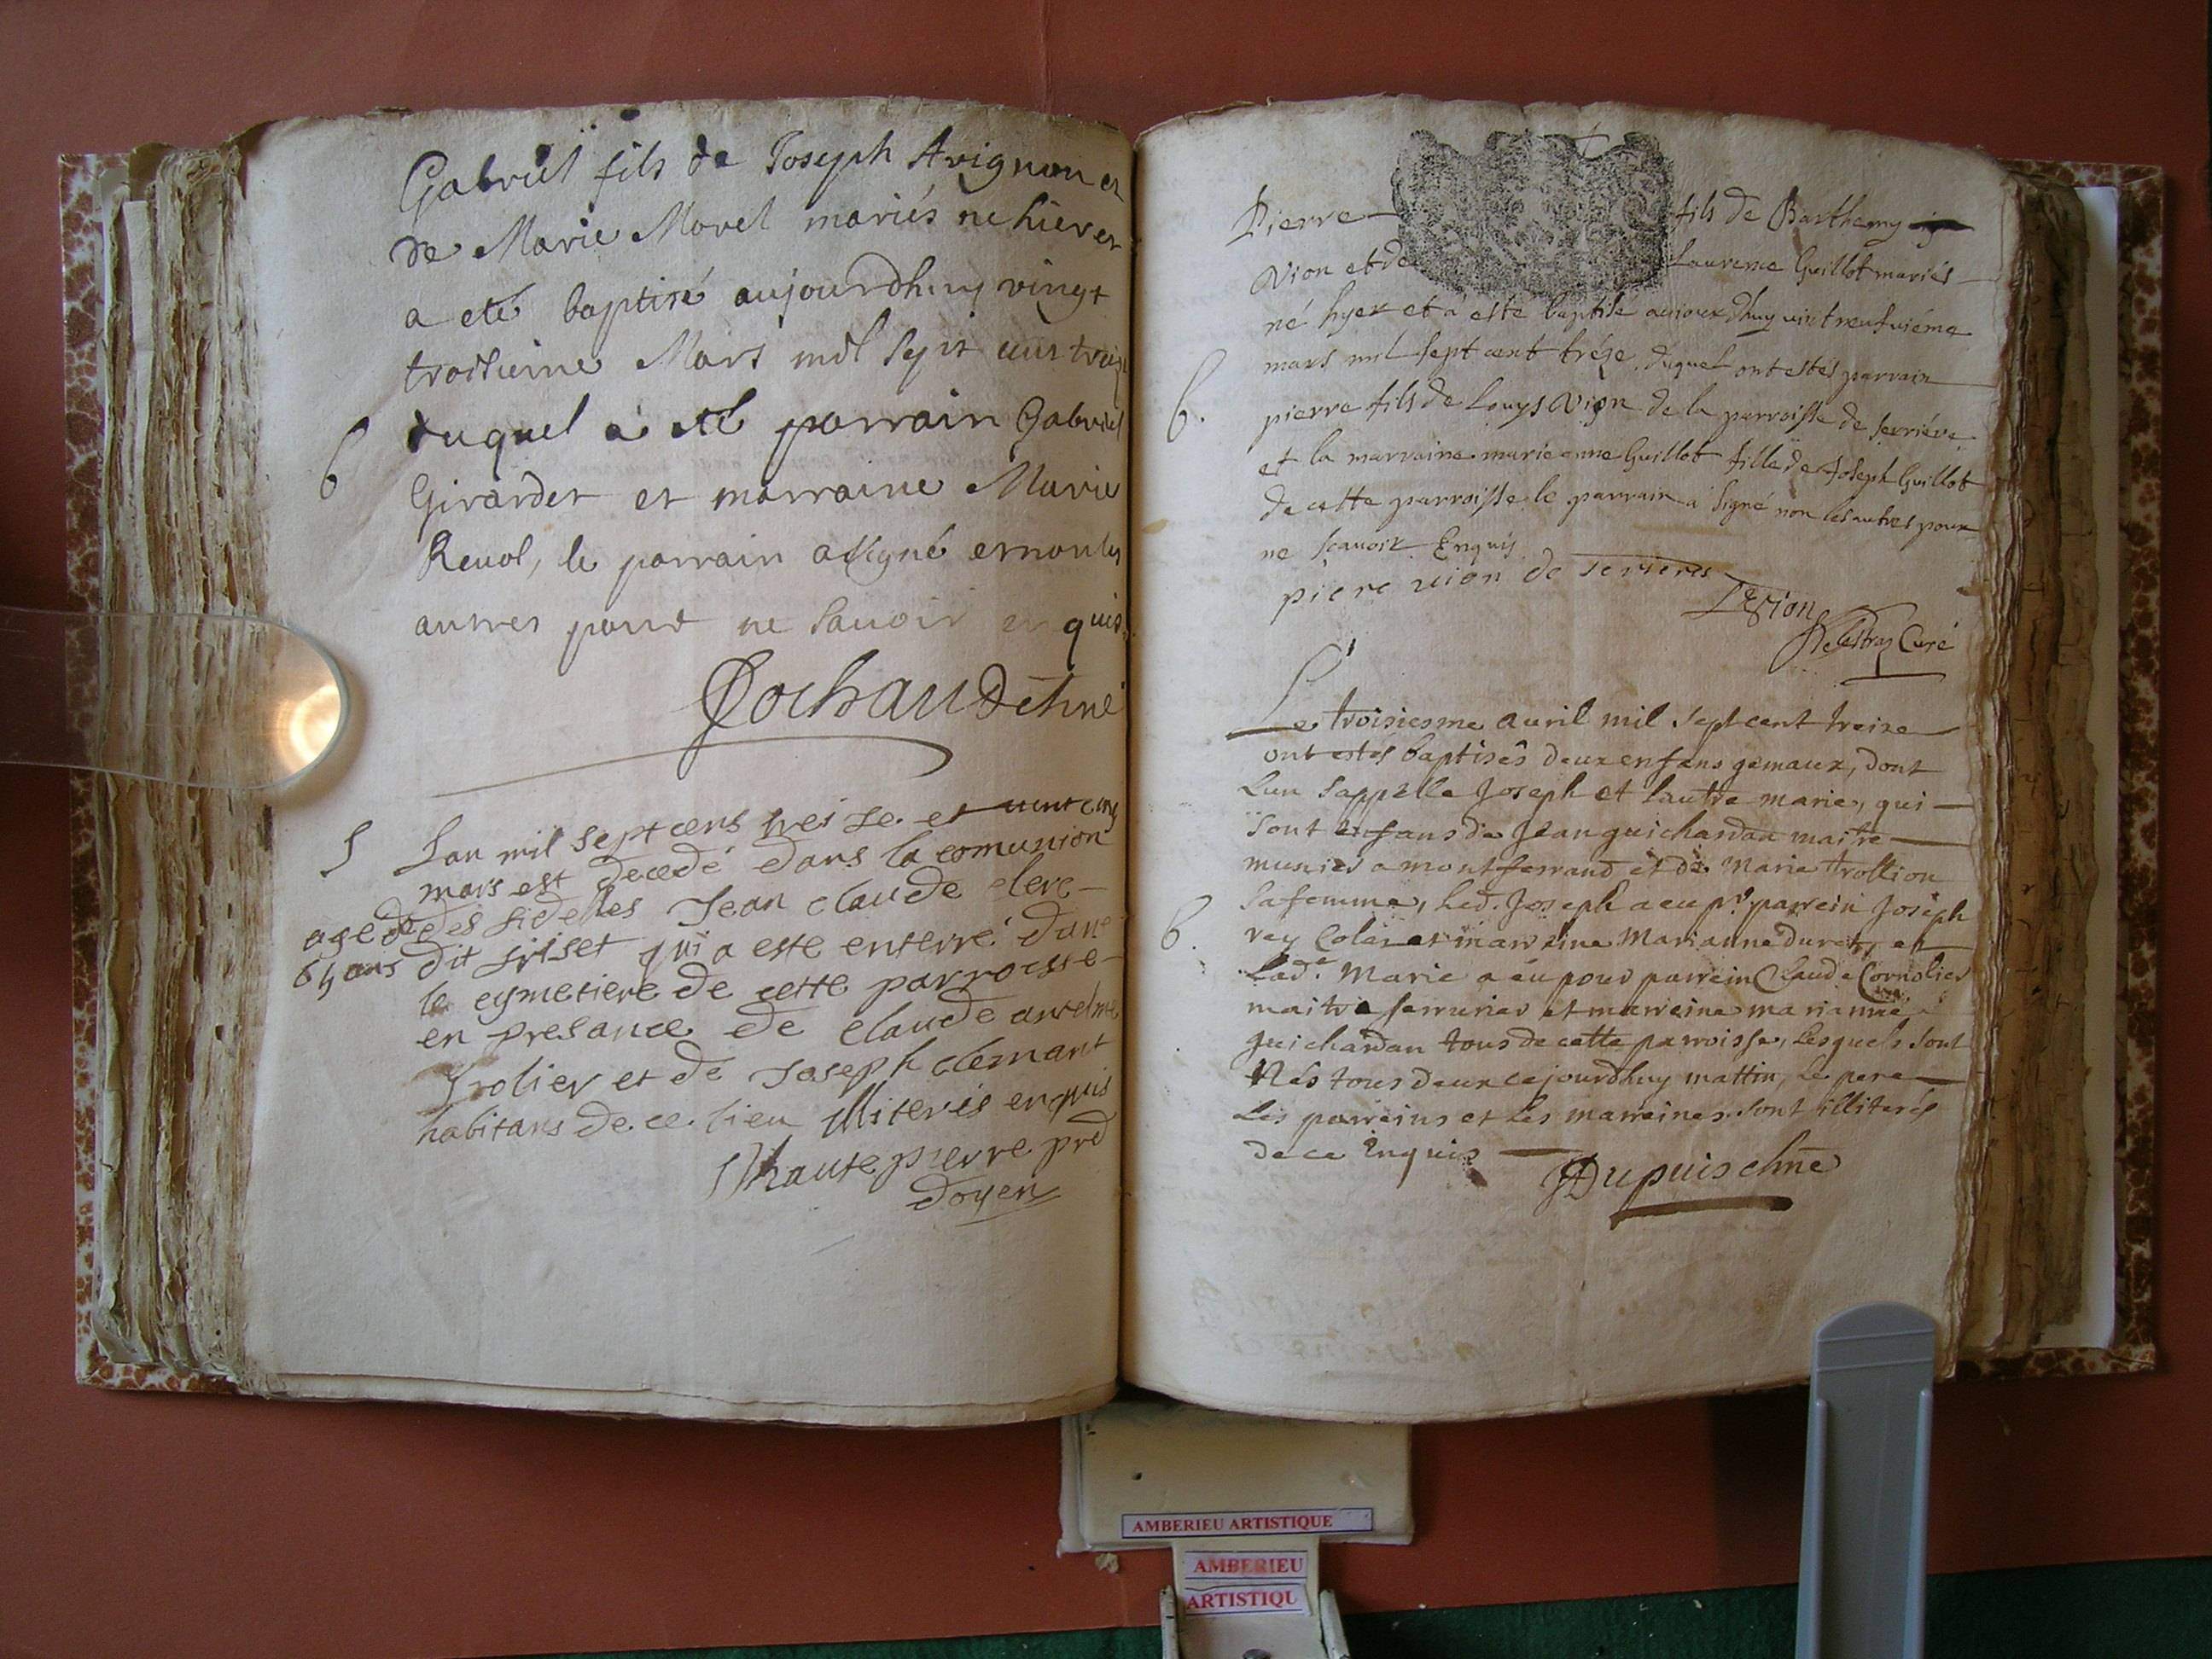 Gabriel fils de Joseph Avignon et
de Marie Morel mariés ne hier et
a eté baptisé aujourdhuy vingt
troisieme Mars mil sept cens treize
duquel a eté parrain Gabriel
B
Girardet et marraine Marie
Revol, le parrain a signé et non les
autres pour ne savoir enquis.
Cochaud chne
S
Lan mil sept cens treise et vint cinq
mars est decedé dans la comunion
agé de des fidelles Jean Claude clerc
65 ans dit friset qui a este enterré dans
le cymetiere de cette parroisse
en presance de Claude antelme
Trolier et de Joseph clemant
habitans de ce lieu illiterés enquis
hautepierre prd
doyen
Pierre fils de Barthemy
Vion et de Laurence Guillot mariés
né hyer et a esté baptisé aujourdhuy vint neufviéme
mars mil sept cent tréze, duquel ont estés parrain
B.
pierre fils de Louys Vion de la parroisse de serriere
et la marraine marie anne Guillot fille de Joseph Guillot
de cette parroisse le parrain a signé non les autres pour
ne scavoir Enquis
piere vion de serieres
Curé
Le troisiesme avril mil sept cent treize
ont estés baptisês deux enfans gemaux, dont
Lun sappelle Joseph et lautre marie, qui
sont enfans de Jean guichardan maitre
munier a montferrand et de Marie trollion
sa femme, led. Joseph a eu pr. parrein Joseph
B.
rey et marreine Marianne et
Lade. Marie a eu pour parrein Claude Cornolier
maitre serrurier et marreine marianne
guichardan tous de cette parroisse, Lesquels sont
Nés tous deux cejourdhuy mattin, Le pere
Les parreins et les marreines sont illiterés
de ce Enquis
Dupuis chne
AMBERIEU ARTISTIQUE
AMBERIEU
ARTISTIQU